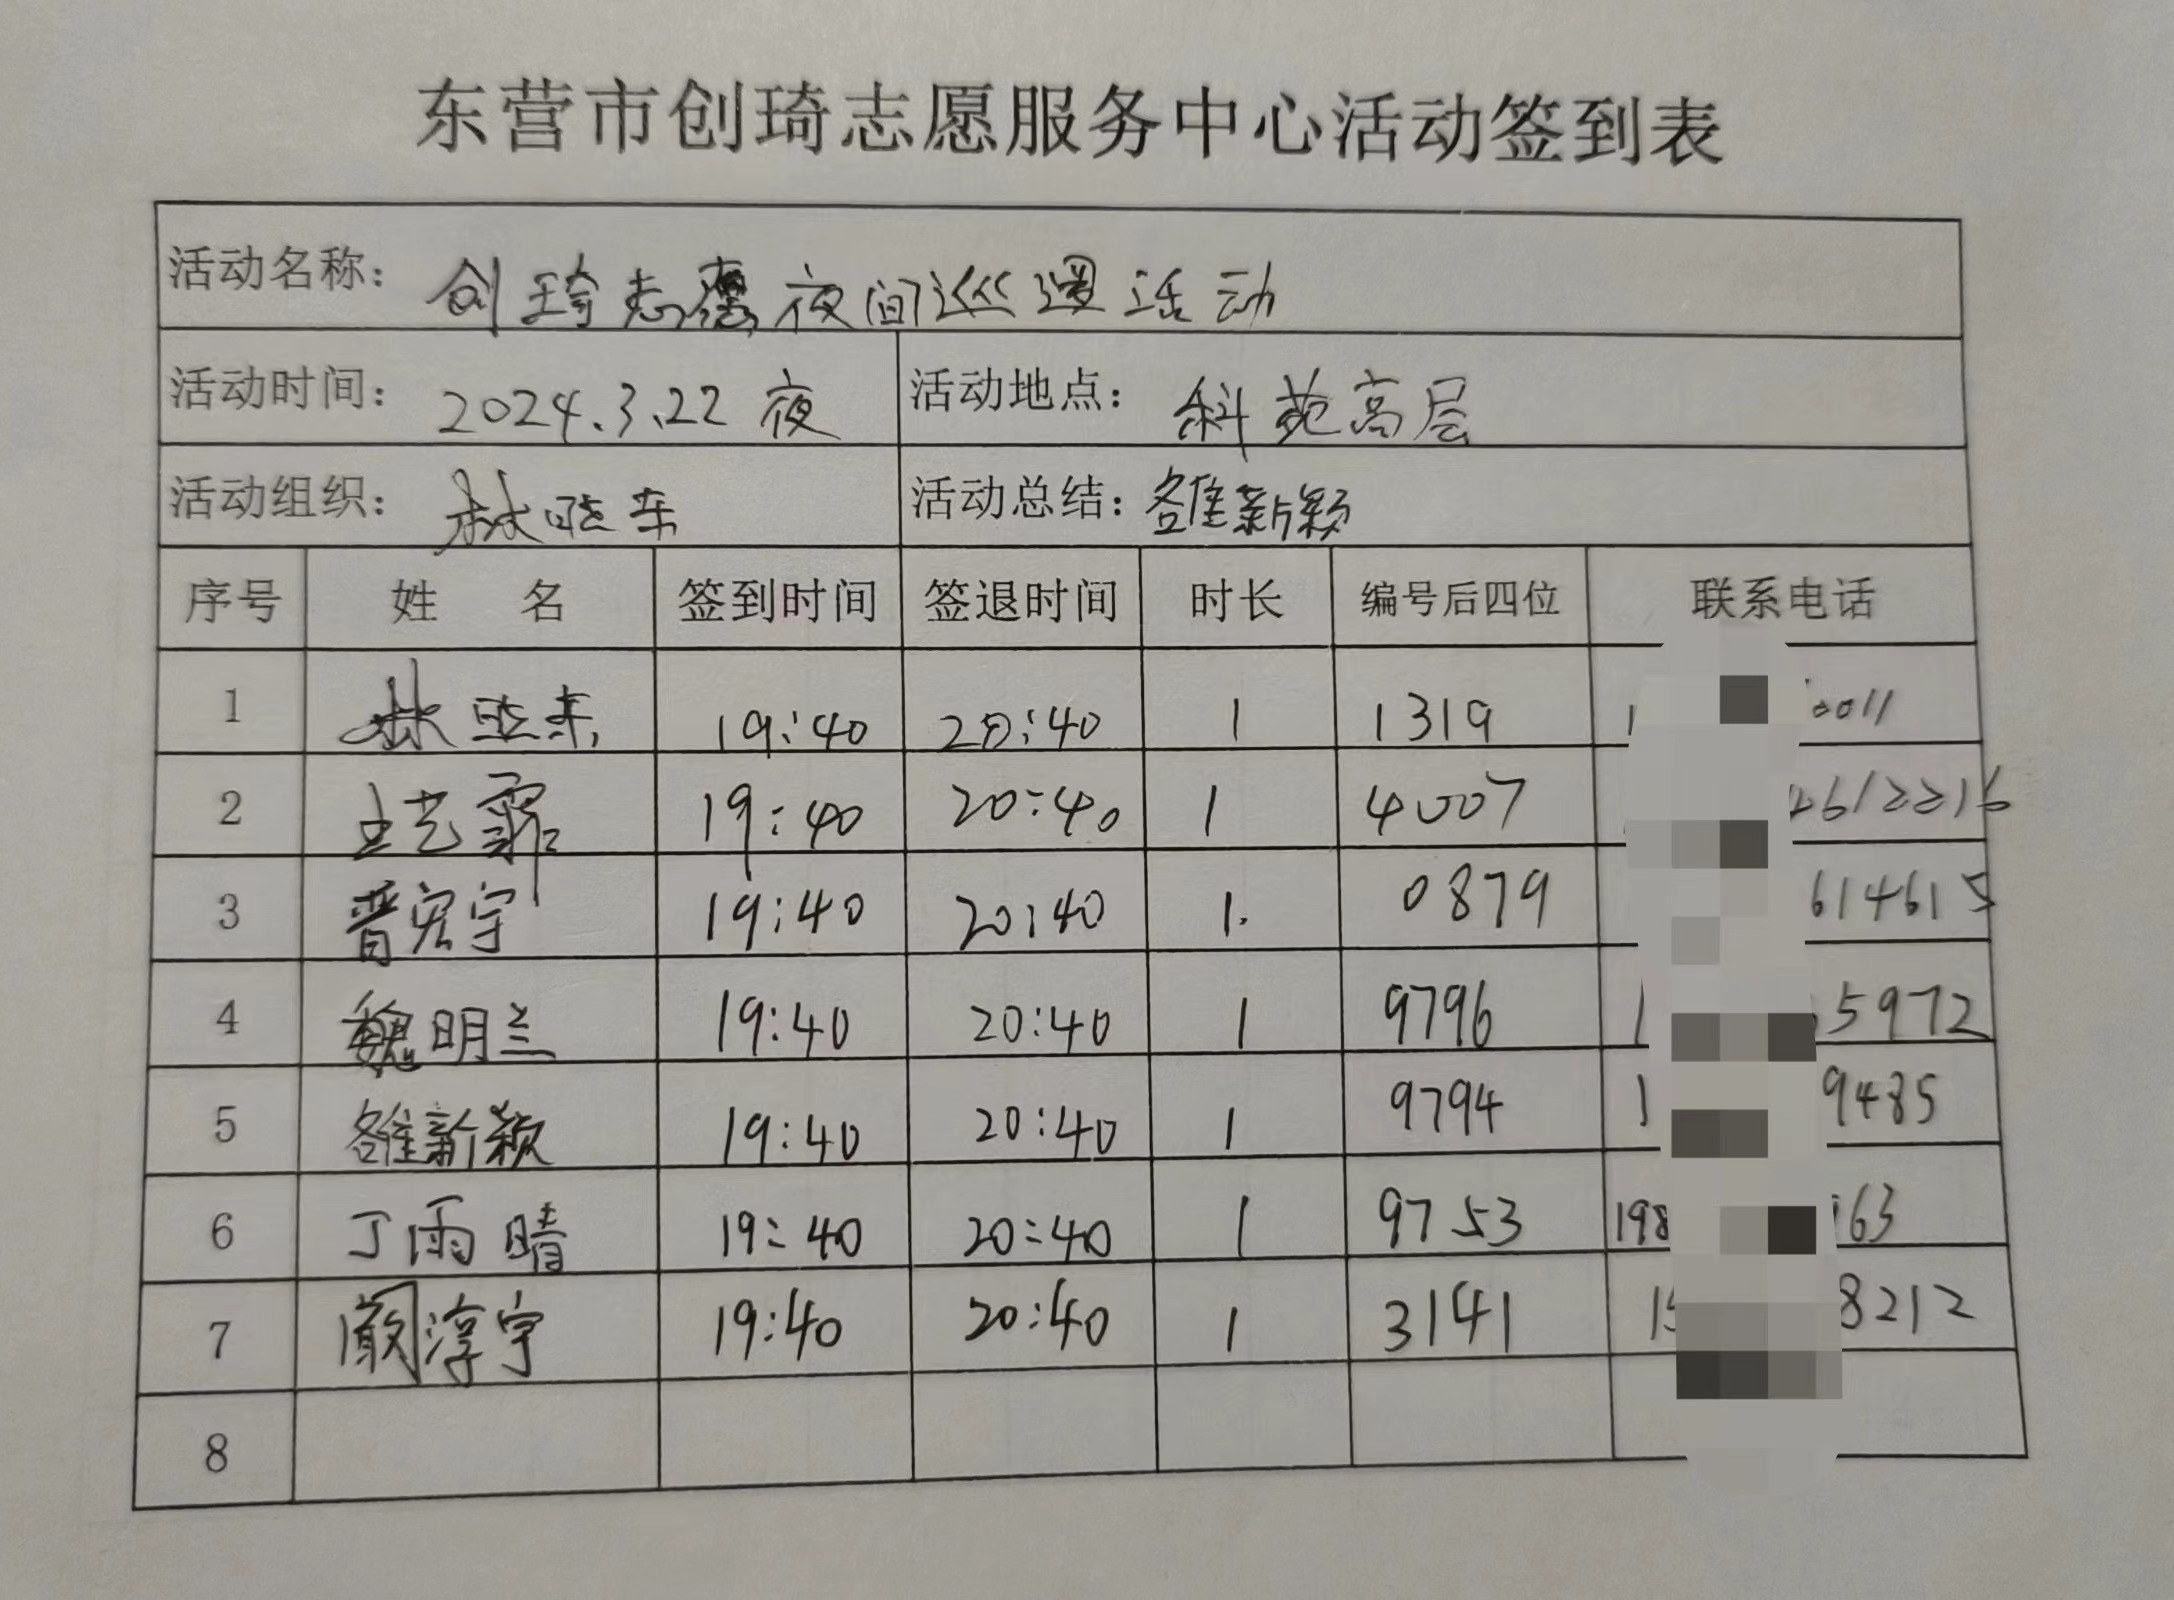 东营市创琦志愿服务中心活动签到表
活动名称： 创琦志愿夜间巡逻活动
活动时间： 2024.3.22 夜 活动地点： 科苑高层
活动组织： 林晓东 活动总结： 雒新颖
序号 姓 名 签到时间 签退时间 时长 编号后四位 联系电话
1 林晓东 19:40 20:40 1 1319 0011
2 王艺霏 19:40 20:40 1 4007 4612216
3 晋宏宇 19:40 20:40 1. 0879 614615
4 魏明兰 19:40 20:40 1 9796 1 5972
5 雒新颖 19:40 20:40 1 9794 1 9485
6 丁雨晴 19:40 20:40 1 9753 198 163
7 阚淳宇 19:40 20:40 1 3141 15 8212
8